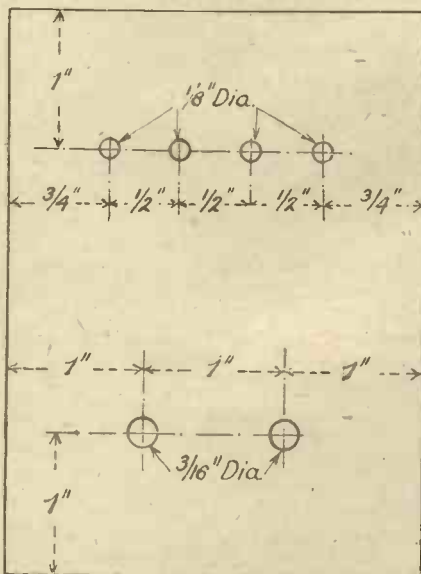 1"
1/8" Dia.
3/4" 1/2" 1/2" 1/2" 3/4"
1" 1" 1"
3/16" Dia
1"